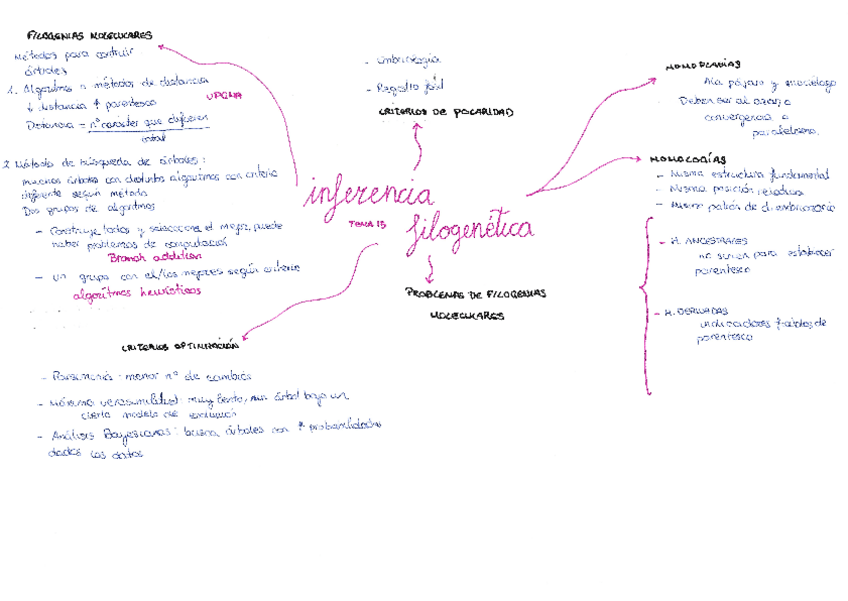 FILOGENIAS MOLECULARES
Métodos para contruir
árboles
1. Algoritmo n métodos de distancia
↓ distancia ↑ parentesco
UPGMA
Distancia = nº carácter que difieren
total
2. Método de búsqueda de árboles:
muchos árboles con distintos algoritmos con criterio
diferente según método
Dos grupos de algoritmos
- Construye todos y selecciona el mejor, puede
haber problemas de computación
Branch addition
- un grupo con el/los mejores según criterio
algoritmos heurísticos
- Embriología
- Registro fósil
CRITERIOS DE POLARIDAD
inferencia
TEMA 15
filogenética
PROBLEMAS DE FILOGENIAS
MOLECULARES
HOMOPLASIAS
Ala pájaro y murciélago
Deben ser al azar, a
convergencia o
paralelismo.
HOMOLOGÍAS
- Misma estructura fundamental
- Misma posición relativa
- Mismo patrón de d. embrionario
- H. ANCESTRALES
no sirven para establecer
parentesco
- H. DERIVADAS
indicadores fiables de
parentesco
CRITERIOS OPTIMIZACIÓN
- Parsimonia: menor nº de cambios
- Máxima verosimilitud: muy lento, un árbol bajo un
cierto modelo de evolución
- Análisis Bayesianos: busca árboles con ↑ probabilidades
dados los datos